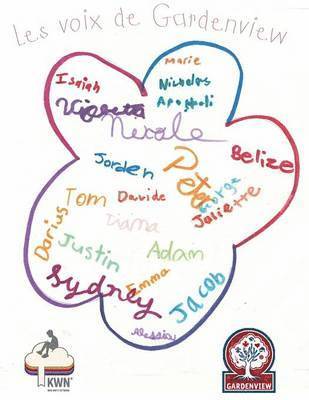 Les voix de Gardenview
marie
Isaiah
Nicholas
Apostoli
Nicole
Jorden
Belize
Peta
George
Joliette
Tom
Davide
Diana
Darius
Justin
Adam
Emma
Sydney
Jacob
Alessia
KWN
GARDENVIEW